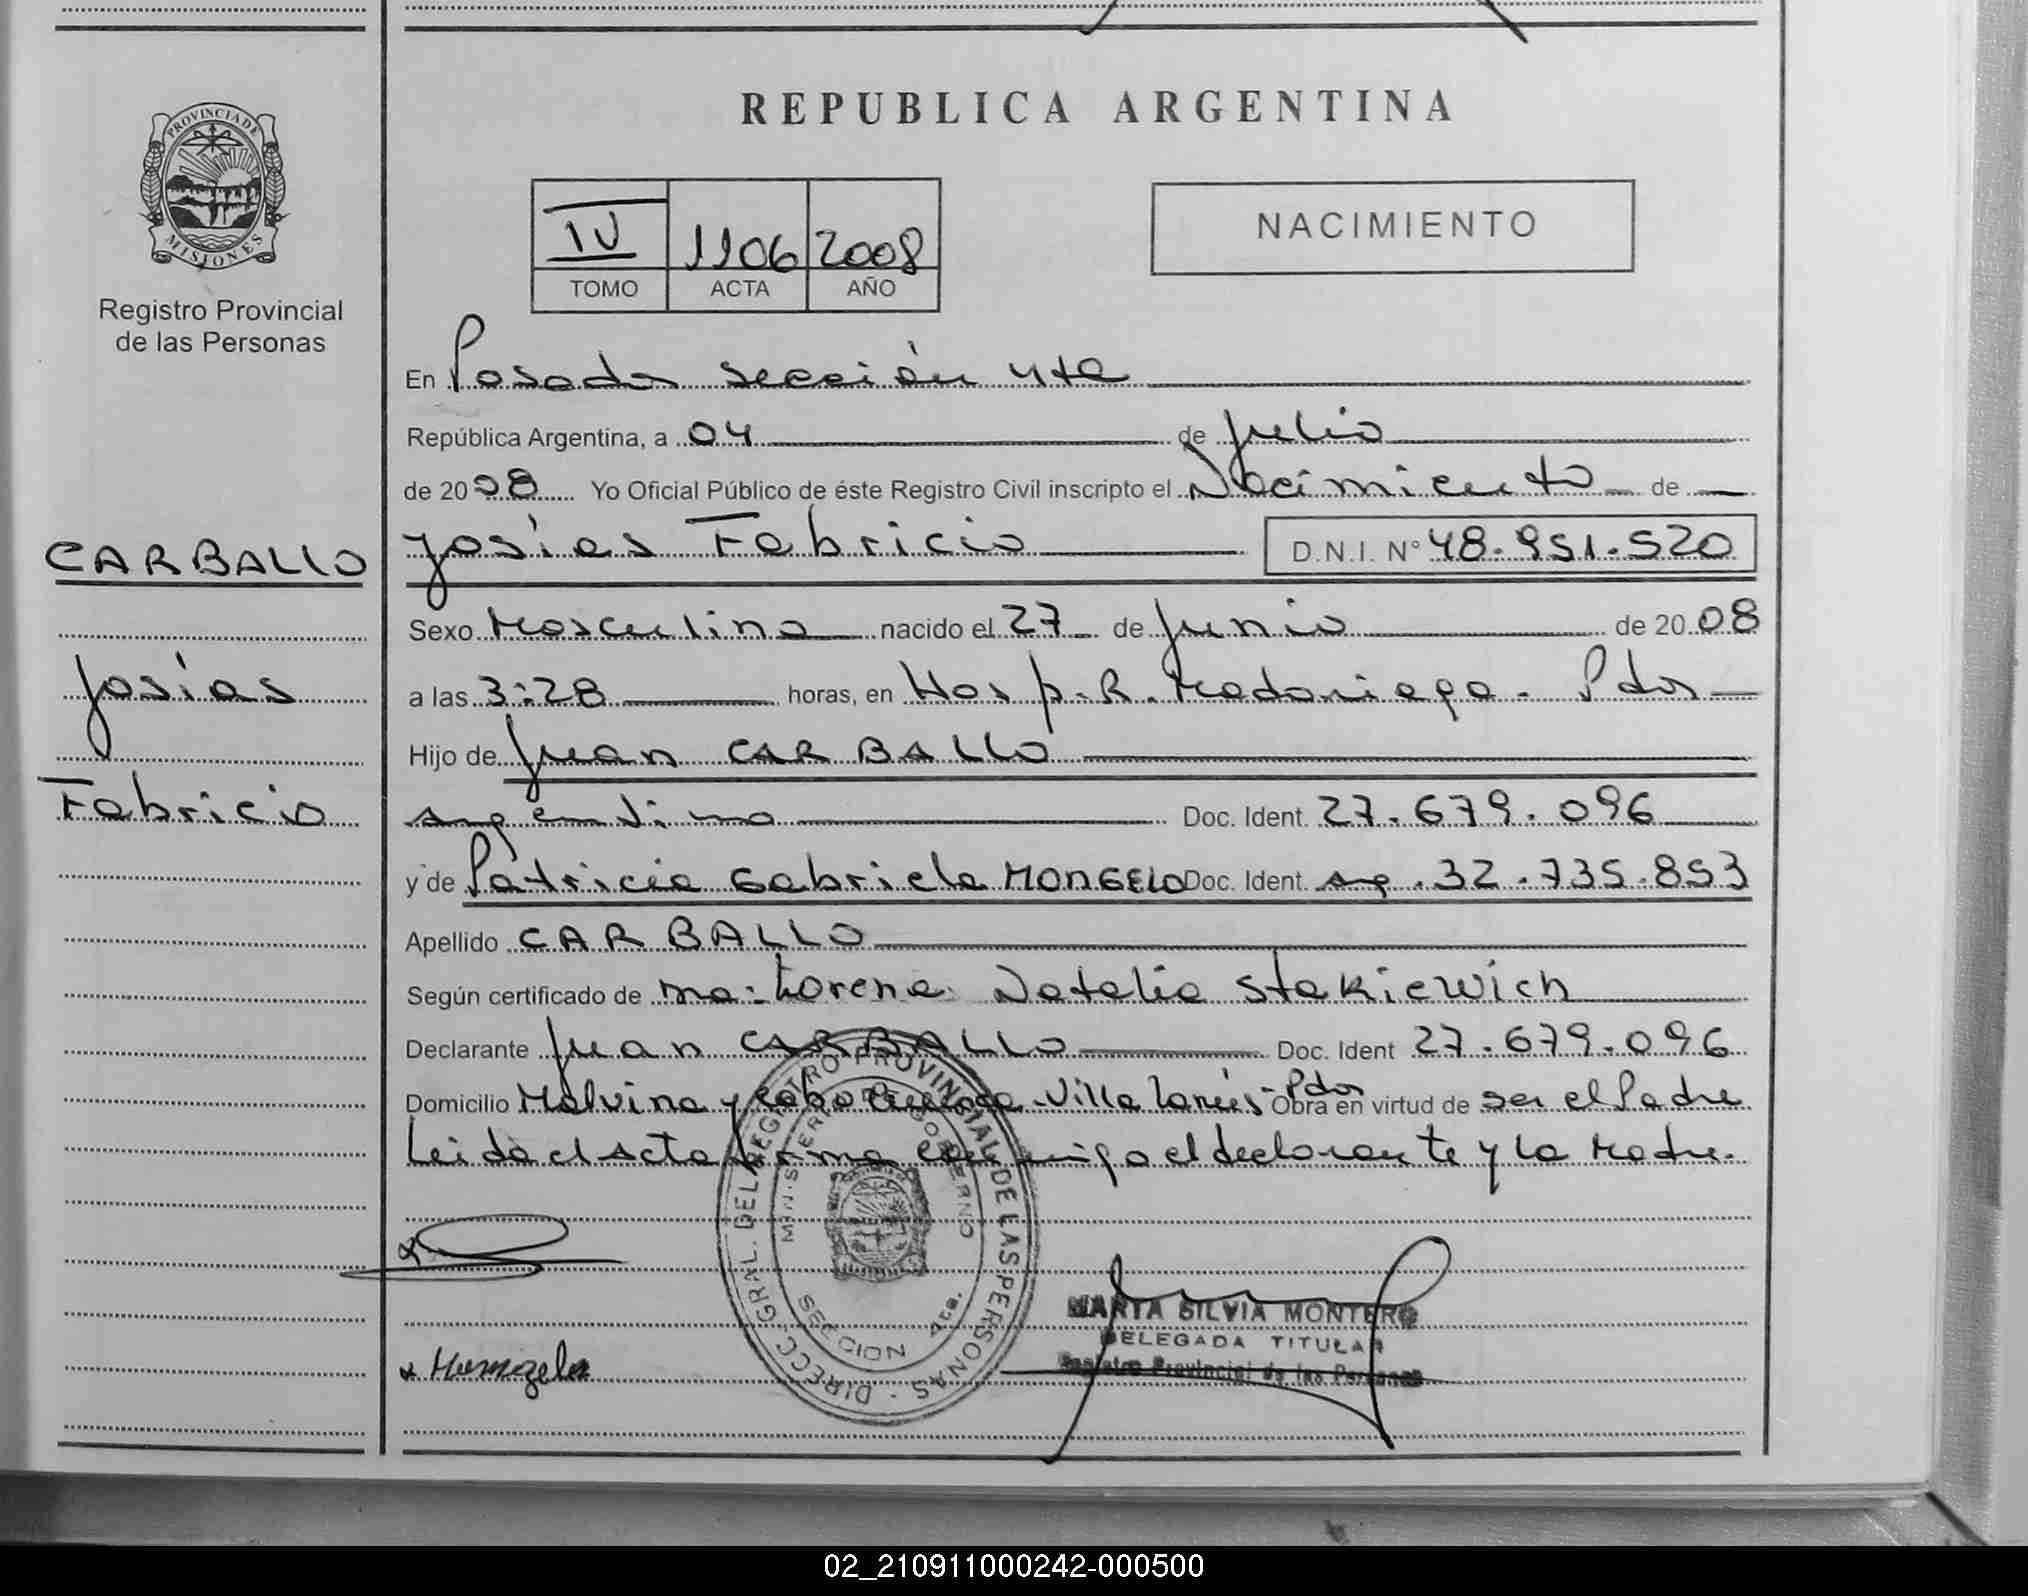 PROVINCIA DE
MISIONES
Registro Provincial
de las Personas
CARBALLO
Josías
Fabricio
REPUBLICA ARGENTINA
IV 1106 2008
TOMO ACTA AÑO
NACIMIENTO
En Posadas sección 4ta
República Argentina, a 04 de Julio
de 2008 Yo Oficial Público de éste Registro Civil inscripto el Nacimiento de
Josías Fabricio D.N.I. N° 48.951.520
Sexo Masculino nacido el 27 de Junio de 2008
a las 3:28 horas, en Hosp. R. Madariaga. Pdas
Hijo de Juan CARBALLO
argentino Doc. Ident. 27.679.096
y de Patricia Gabriela MONGELO Doc. Ident. arg. 32.735.853
Apellido CARBALLO
Según certificado de Ma. Lorena Natalia Stakiewich
Declarante Juan CARBALLO Doc. Ident 27.679.096
Domicilio Malvina y Cabo - Villa Lanús - Pdas Obra en virtud de ser el Padre
Leida el Acta firma conmigo el declarante y la Madre.
DIRECC. GRAL. DEL REGISTRO PROVINCIAL DE LAS PERSONAS
MINISTERIO DE GOBIERNO
SECCION 4ta.
MARTA SILVIA MONTERO
DELEGADA TITULAR
Registro Provincial de las Personas
02_210911000242-000500